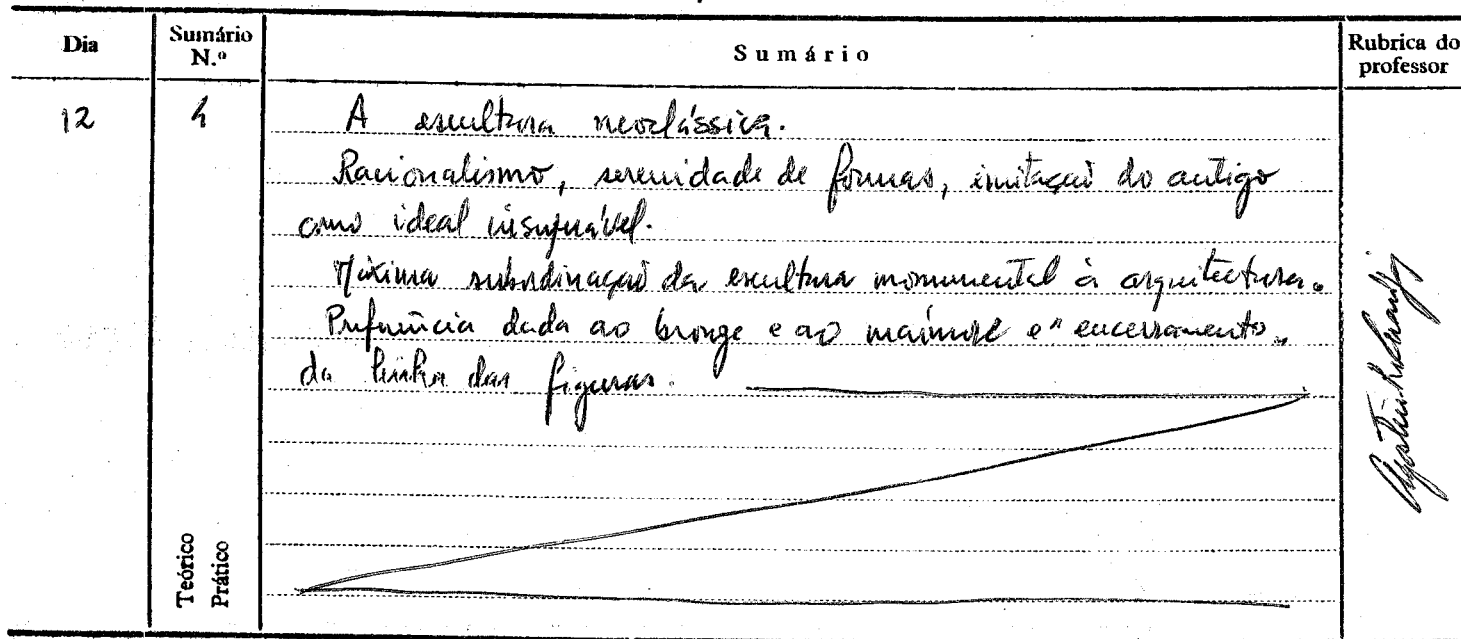 Dia
Sumário N.º
Sumário
Rubrica do professor
12
4
A escultura neoclássica.
Racionalismo, serenidade de formas, imitação do antigo
como ideal insuperável.
Máxima subordinação da escultura monumental à arquitectura.
Preferência dada ao bronze e ao mármore e "encerramento"
da linha das figuras.
Teórico
Prático